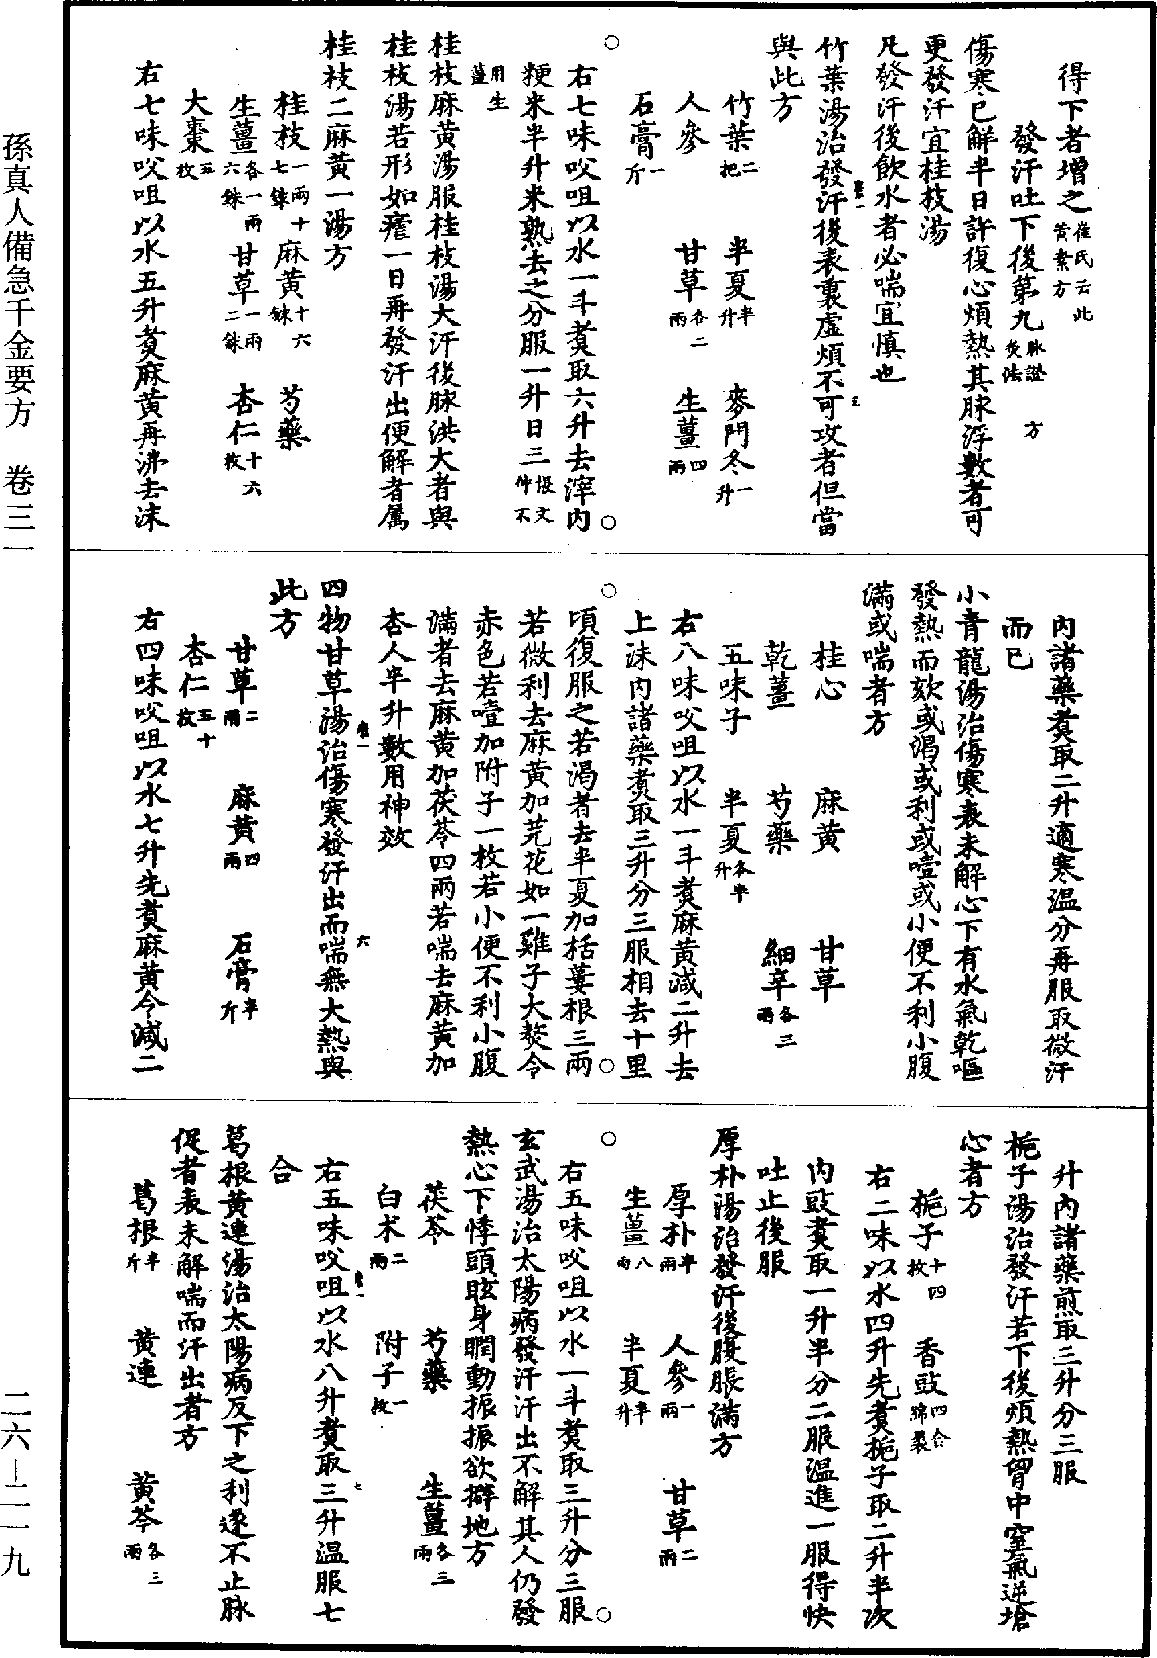 得下者增之崔氏云此黃素方
發汗吐下後第九脉證灸法 方
傷寒已解半日許復心煩熱其脉浮數者可
更發汗宜桂枝湯
凡發汗後飲水者必喘宜慎也
竹葉湯治發汗後表裏虛煩不可攻者但當
與此方
竹葉二把 半夏半升 麥門冬一升
人參 甘草各二兩 生薑四兩
石膏一斤
右七味㕮咀以水一斗煑取六升去滓内
粳米半升米熟去之分服一升日三
用生薑
桂枝麻黃湯服桂枝湯大汗後脉洪大者與
桂枝湯若形如瘧一日再發汗出便解者屬
桂枝二麻黃一湯方
桂枝一兩十七銖 麻黃十六銖 芍藥
生薑各一兩六銖 甘草一兩二銖 杏仁十六枚
大棗五枚
右七味㕮咀以水五升煑麻黃再沸去沫
内諸藥煑取二升適寒温分再服取微汗
而已
小青龍湯治傷寒表未解心下有水氣乾嘔
發熱而欬或渴或利或噎或小便不利小腹
滿或喘者方
桂心 麻黃 甘草
乾薑 芍藥 細辛各三兩
五味子 半夏各半升
右八味㕮咀以水一斗煑麻黃減二升去
上沫内諸藥煑取三升分三服相去十里
頃復服之若渴者去半夏加括蔞根三兩
若微利去麻黃加芫花如一雞子大熬令
赤色若噎加附子一枚若小便不利小腹
滿者去麻黃加茯苓四兩若喘去麻黃加
杏人半升數用神效
四物甘草湯治傷寒發汗出而喘無大熱與
此方
甘草二兩 麻黃四兩 石膏半斤
杏仁五十枚
右四味㕮咀以水七升先煑麻黃令減二
升内諸藥煎取三升分三服
梔子湯治發汗若下後煩熱胷中窒氣逆搶
心者方
梔子十四枚 香豉四合綿裹
右二味以水四升先煑梔子取二升半次
内豉煑取一升半分二服温進一服得快
吐止後服
厚朴湯治發汗後腹脹滿方
厚朴半兩 人參一兩 甘草二兩
生薑八兩 半夏半升
右五味㕮咀以水一斗煑取三升分三服
玄武湯治太陽病發汗汗出不解其人仍發
熱心下悸頭眩身瞤動振振欲擗地方
茯苓 芍藥 生薑各三兩
白术二兩 附子一枚
右五味㕮咀以水八升煑取三升温服七
合
葛根黃連湯治太陽病反下之利遂不止脉
促者表未解喘而汗出者方
葛根半斤 黃連 黃芩各三兩
孫真人備急千金要方 卷三一
二六—二一九